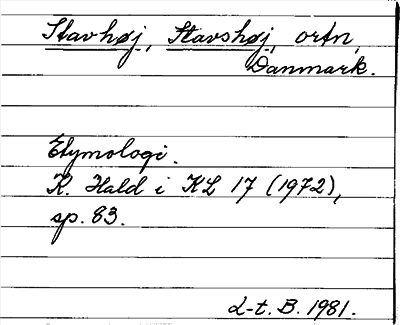 Stavhøj, Stavshøj, ortn,
Danmark.
Etymologi.
K. Hald i KL 17 (1972),
sp. 83.
L-t. B. 1981.